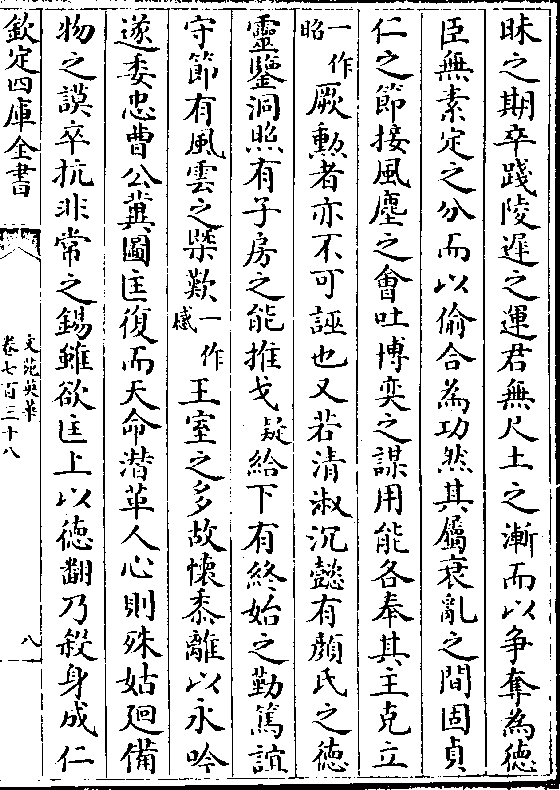 昧之期卒踐陵遲之運君無尺土之漸而以爭奪為德
臣無素定之分而以偷合為功然其屬衰亂之間固貞
仁之節接風塵之會吐博奕之謀用能各奉其主克立
一作昭厥勲者亦不可誣也又若清淑沉懿有顔氏之德
靈鑒洞照有子房之能推戈疑給下有終始之勤篤誼
守節有風雲之槩歎一作慼王室之多故懷黍離以永吟
遂委忠曹公冀圖匡復而天命潛革人心則殊姑廻備
物之謨卒抗非常之錫雖欲匡上以德翻乃殺身成仁
欽定四庫全書
文苑英華
卷七百三十八
八